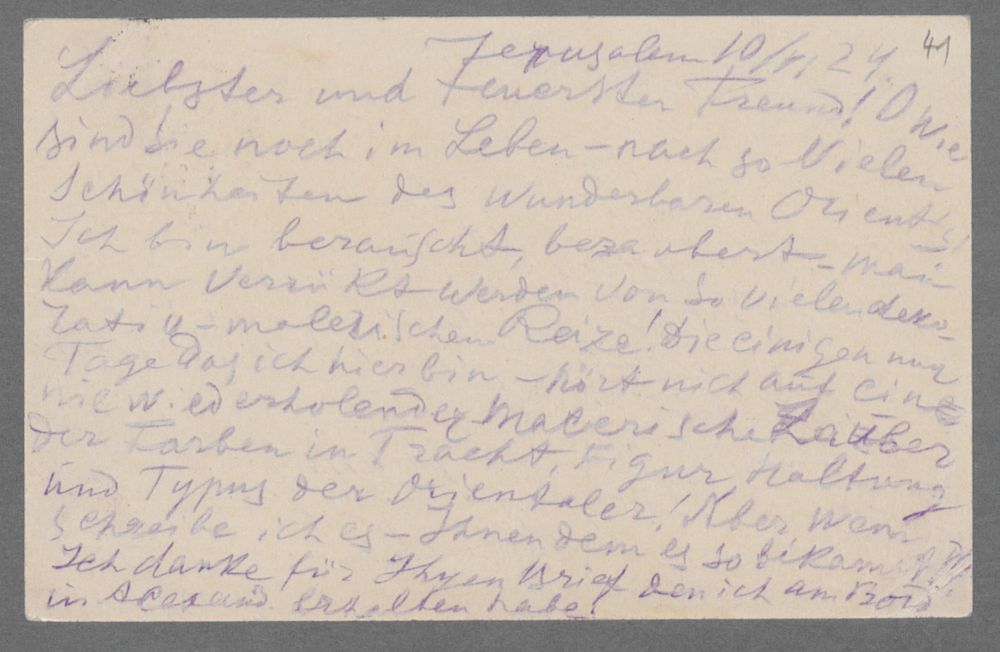 41
Jerusalem 10/VI 24.
Liebster und Teuerster Freund! O wie
sind Sie noch im Leben – nach so Vielen
Schönheiten des wunderbaren Orients!
Ich bin berauscht, bezaubert – man
kann Verzückt werden von so vielen deko-
rativ – malerischen Reize! Die einigen nur
Tage das ich hier bin – hört nich auf eine
nie wiederholender Malerische Zauber
der Farben in Tracht, Figur Haltung
und Typus der Orientaler! Aber wem
schreibe ich es – Ihnen dem es so bekannt ist!!
Ich danke für Ihren Brief den ich am Bord
in Alexand. erhalten habe!